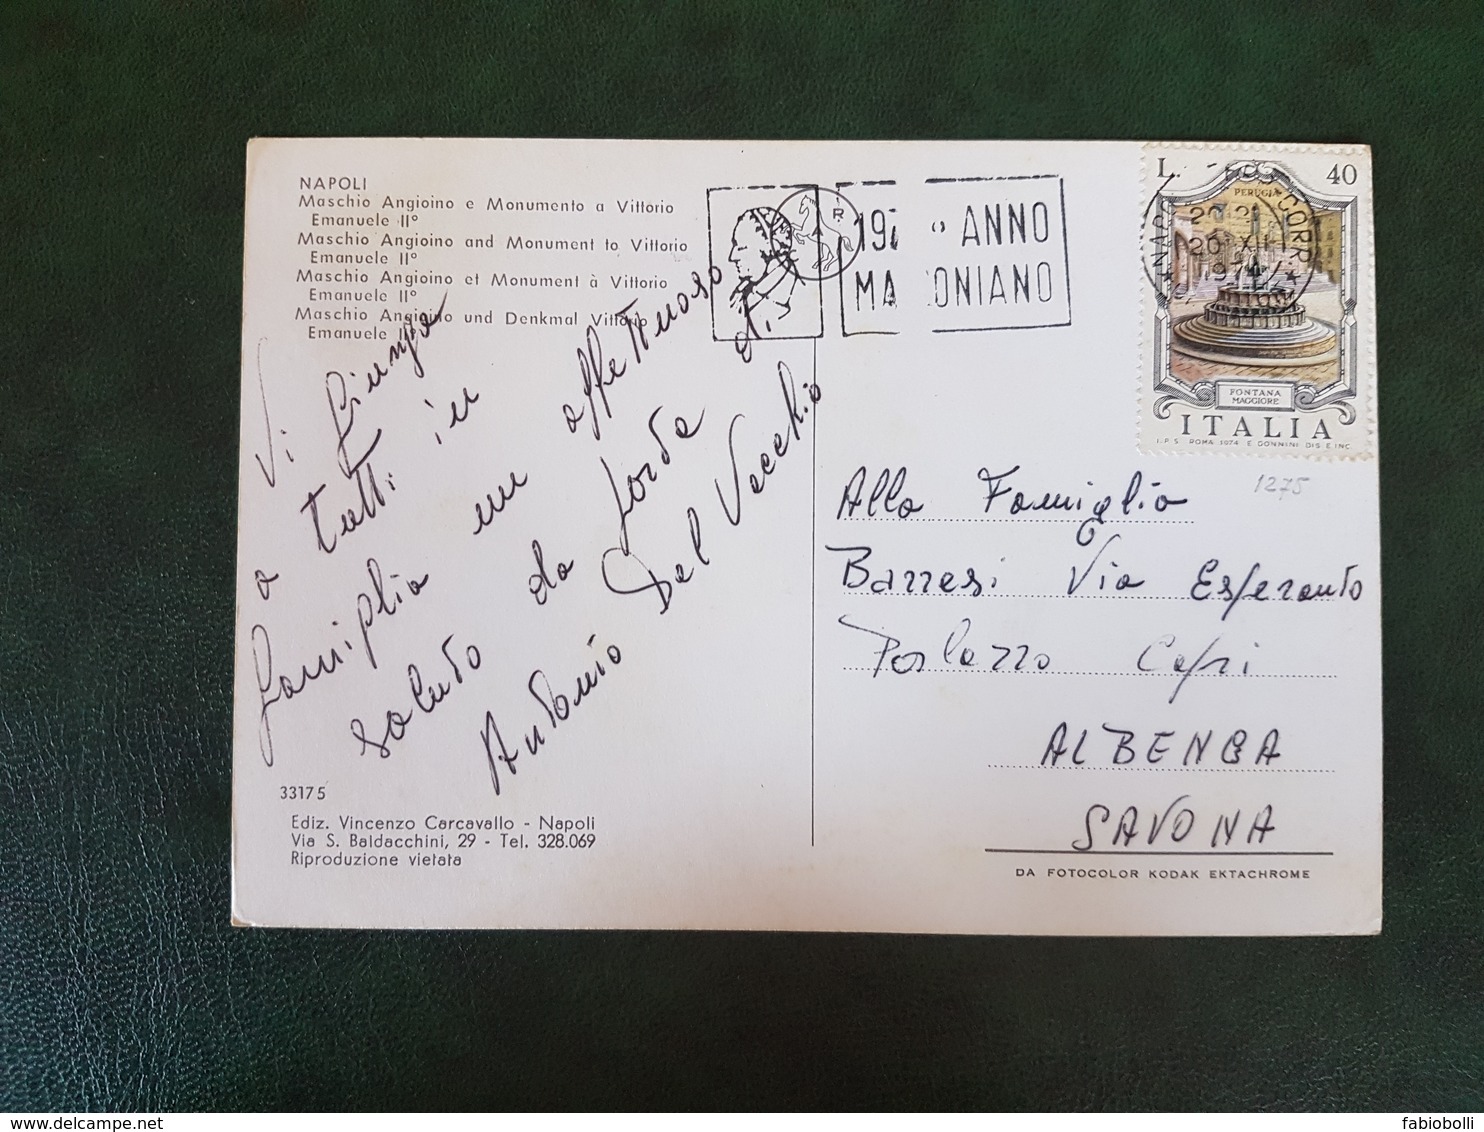 NAPOLI
Maschio Angioino e Monumento a Vittorio
Emanuele II°
Maschio Angioino and Monument to Vittorio
Emanuele II°
Maschio Angioino et Monument à Vittorio
Emanuele II°
Maschio Angioino und Denkmal Vittorio
Emanuele II°
Vi Giunga
a tutti in
famiglia un affettuoso
saluto da parte di
Antonio Del Vecchio
33175
Ediz. Vincenzo Carcavallo - Napoli
Via S. Baldacchini, 29 - Tel. 328.069
Riproduzione vietata
A R
ANNO
MA ONIANO
L. 40
PERUGIA
CORR
20 XII
FONTANA
MAGGIORE
ITALIA
I.P.S. ROMA 1974 E. DONNINI DIS. E INC.
1275
Alla Famiglia
Barresi Via Esperanto
Palazzo Capri
ALBENGA
SAVONA
DA FOTOCOLOR KODAK EKTACHROME
fabiobolli